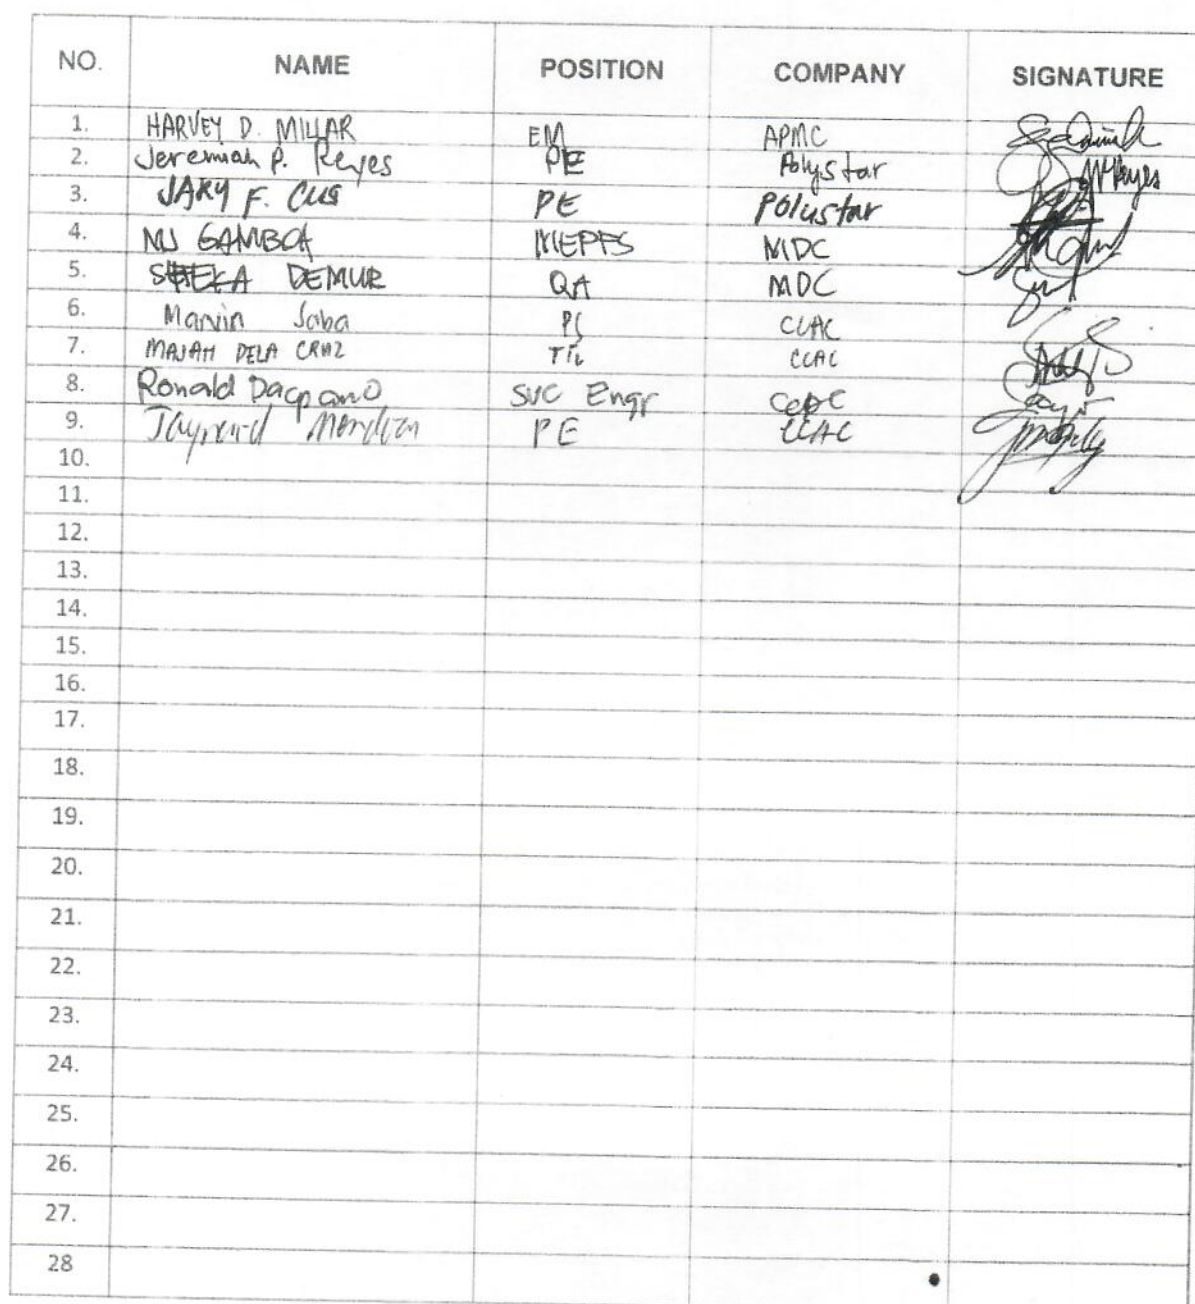 NO. NAME POSITION COMPANY SIGNATURE
1. HARVEY D. MILLAR EM APMC
2. Jeremiah P. Reyes PE Polystar
3. JARY F. PE Polystar
4. NJ GAMBOA MEPFS MDC
5. DEMUR QA MDC
6. Marvin Saba CCAC
7. MAJAH DELA CRUZ CCAC
8. Ronald Dacpano SVC Engr
9. PE CCAC
10.
11.
12.
13.
14.
15.
16.
17.
18.
19.
20.
21.
22.
23.
24.
25.
26.
27.
28